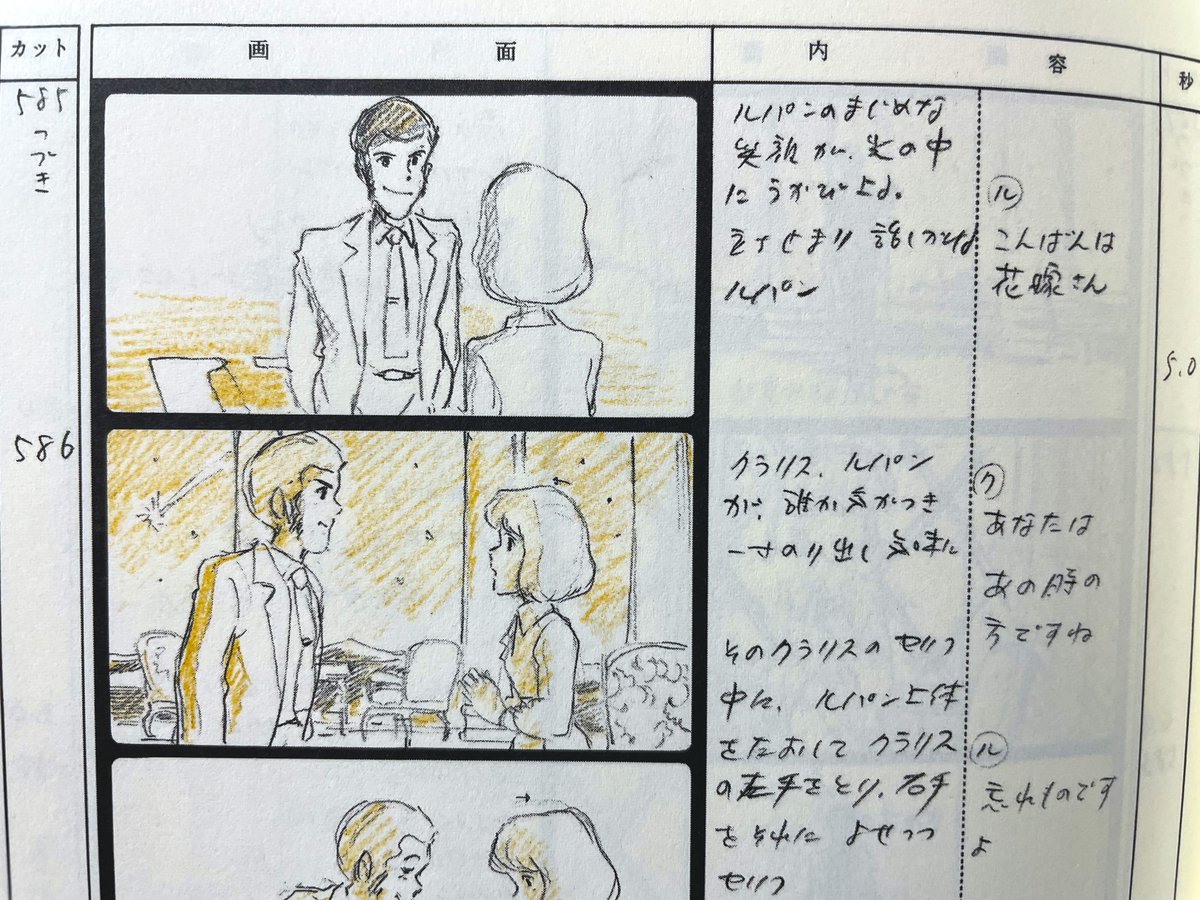 カット
画面
内容
秒
585
つづき
ルパンのまじめな
笑顔が、光の中
にうかび上る。
ルパン
ル
こんばんは
花嫁さん
5.0
586
クラリス、ルパン
が、誰か気がつき
一寸のり出し気味に
そのクラリスのセリフ
中に、ルパン上体
をたおしてクラリス
の左手をとり、右手
をそれによせつつ
セリフ
ク
あなたは
あの時の
方ですね
ル
忘れものです
よ